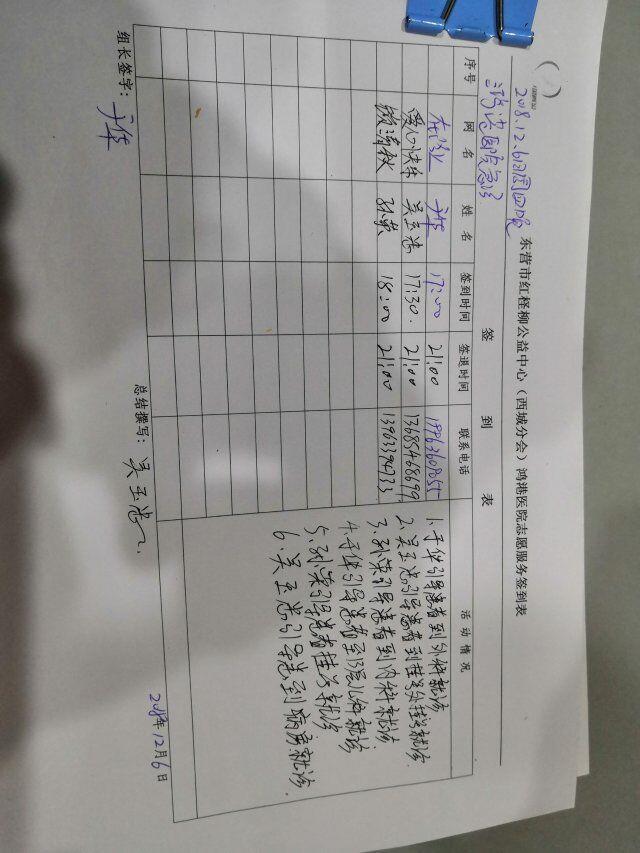 2018.12.6日周四晚 东营市红柽柳公益中心（西城分会）鸿港医院志愿服务签到表
鸿港医院急诊
签到表
序号 网名 姓名 签到时间 签退时间 联系电话 活动情况
于华 17:00 21:00
爱心快乐 吴玉忠 17:30. 21:00 13685468699
微清秋 孙荣 18:00 21:00 13963394733
1.于华引导患者到外科就诊
2.吴玉忠引导患者到挂号处挂号就诊
3.孙荣引导患者到内科就诊
4.于华引导患者至13层儿科就诊
5.孙荣引导患者挂号就诊
6.吴玉忠引导患到病房就诊.
组长签字：于华
总结撰写：吴玉忠
2018年12月6日